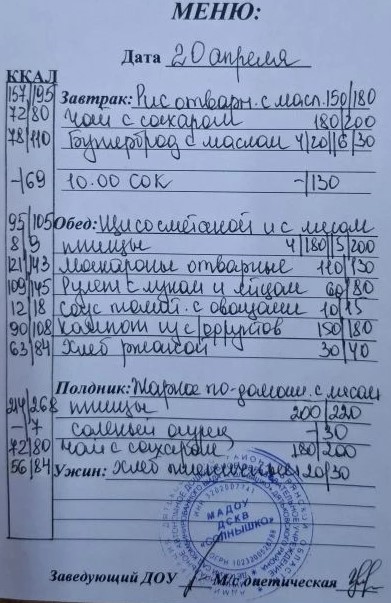 МЕНЮ:
Дата 20 апреля
ККАЛ
157/195 Завтрак: Рис отварн. с масл. 150/180
72/80 Чай с сахаром 180/200
78/110 Бутерброд с маслом 4/20//6/30
-/69 10.00 СОК -/130
95/105 Обед: Щи со сметаной и с мясом
8/9 птицы 4/180/5/200
121/143 Макароны отварные 110/130
109/145 Рулет с луком и яйцом 60/80
12/18 Соус томат. с овощами 10/15
90/108 Компот из с/фруктов 150/180
63/84 Хлеб ржаной 30/40
Полдник: Жаркое по-домаш. с мясом
214/268 птицы 200/220
-/7 соленый огурец -/30
72/80 Чай с сахаром 180/200
56/84 Ужин: Хлеб пшеничный 20/30
МАДОУ
ДСКВ
«СОЛНЫШКО»
Заведующий ДОУ М/с диетическая